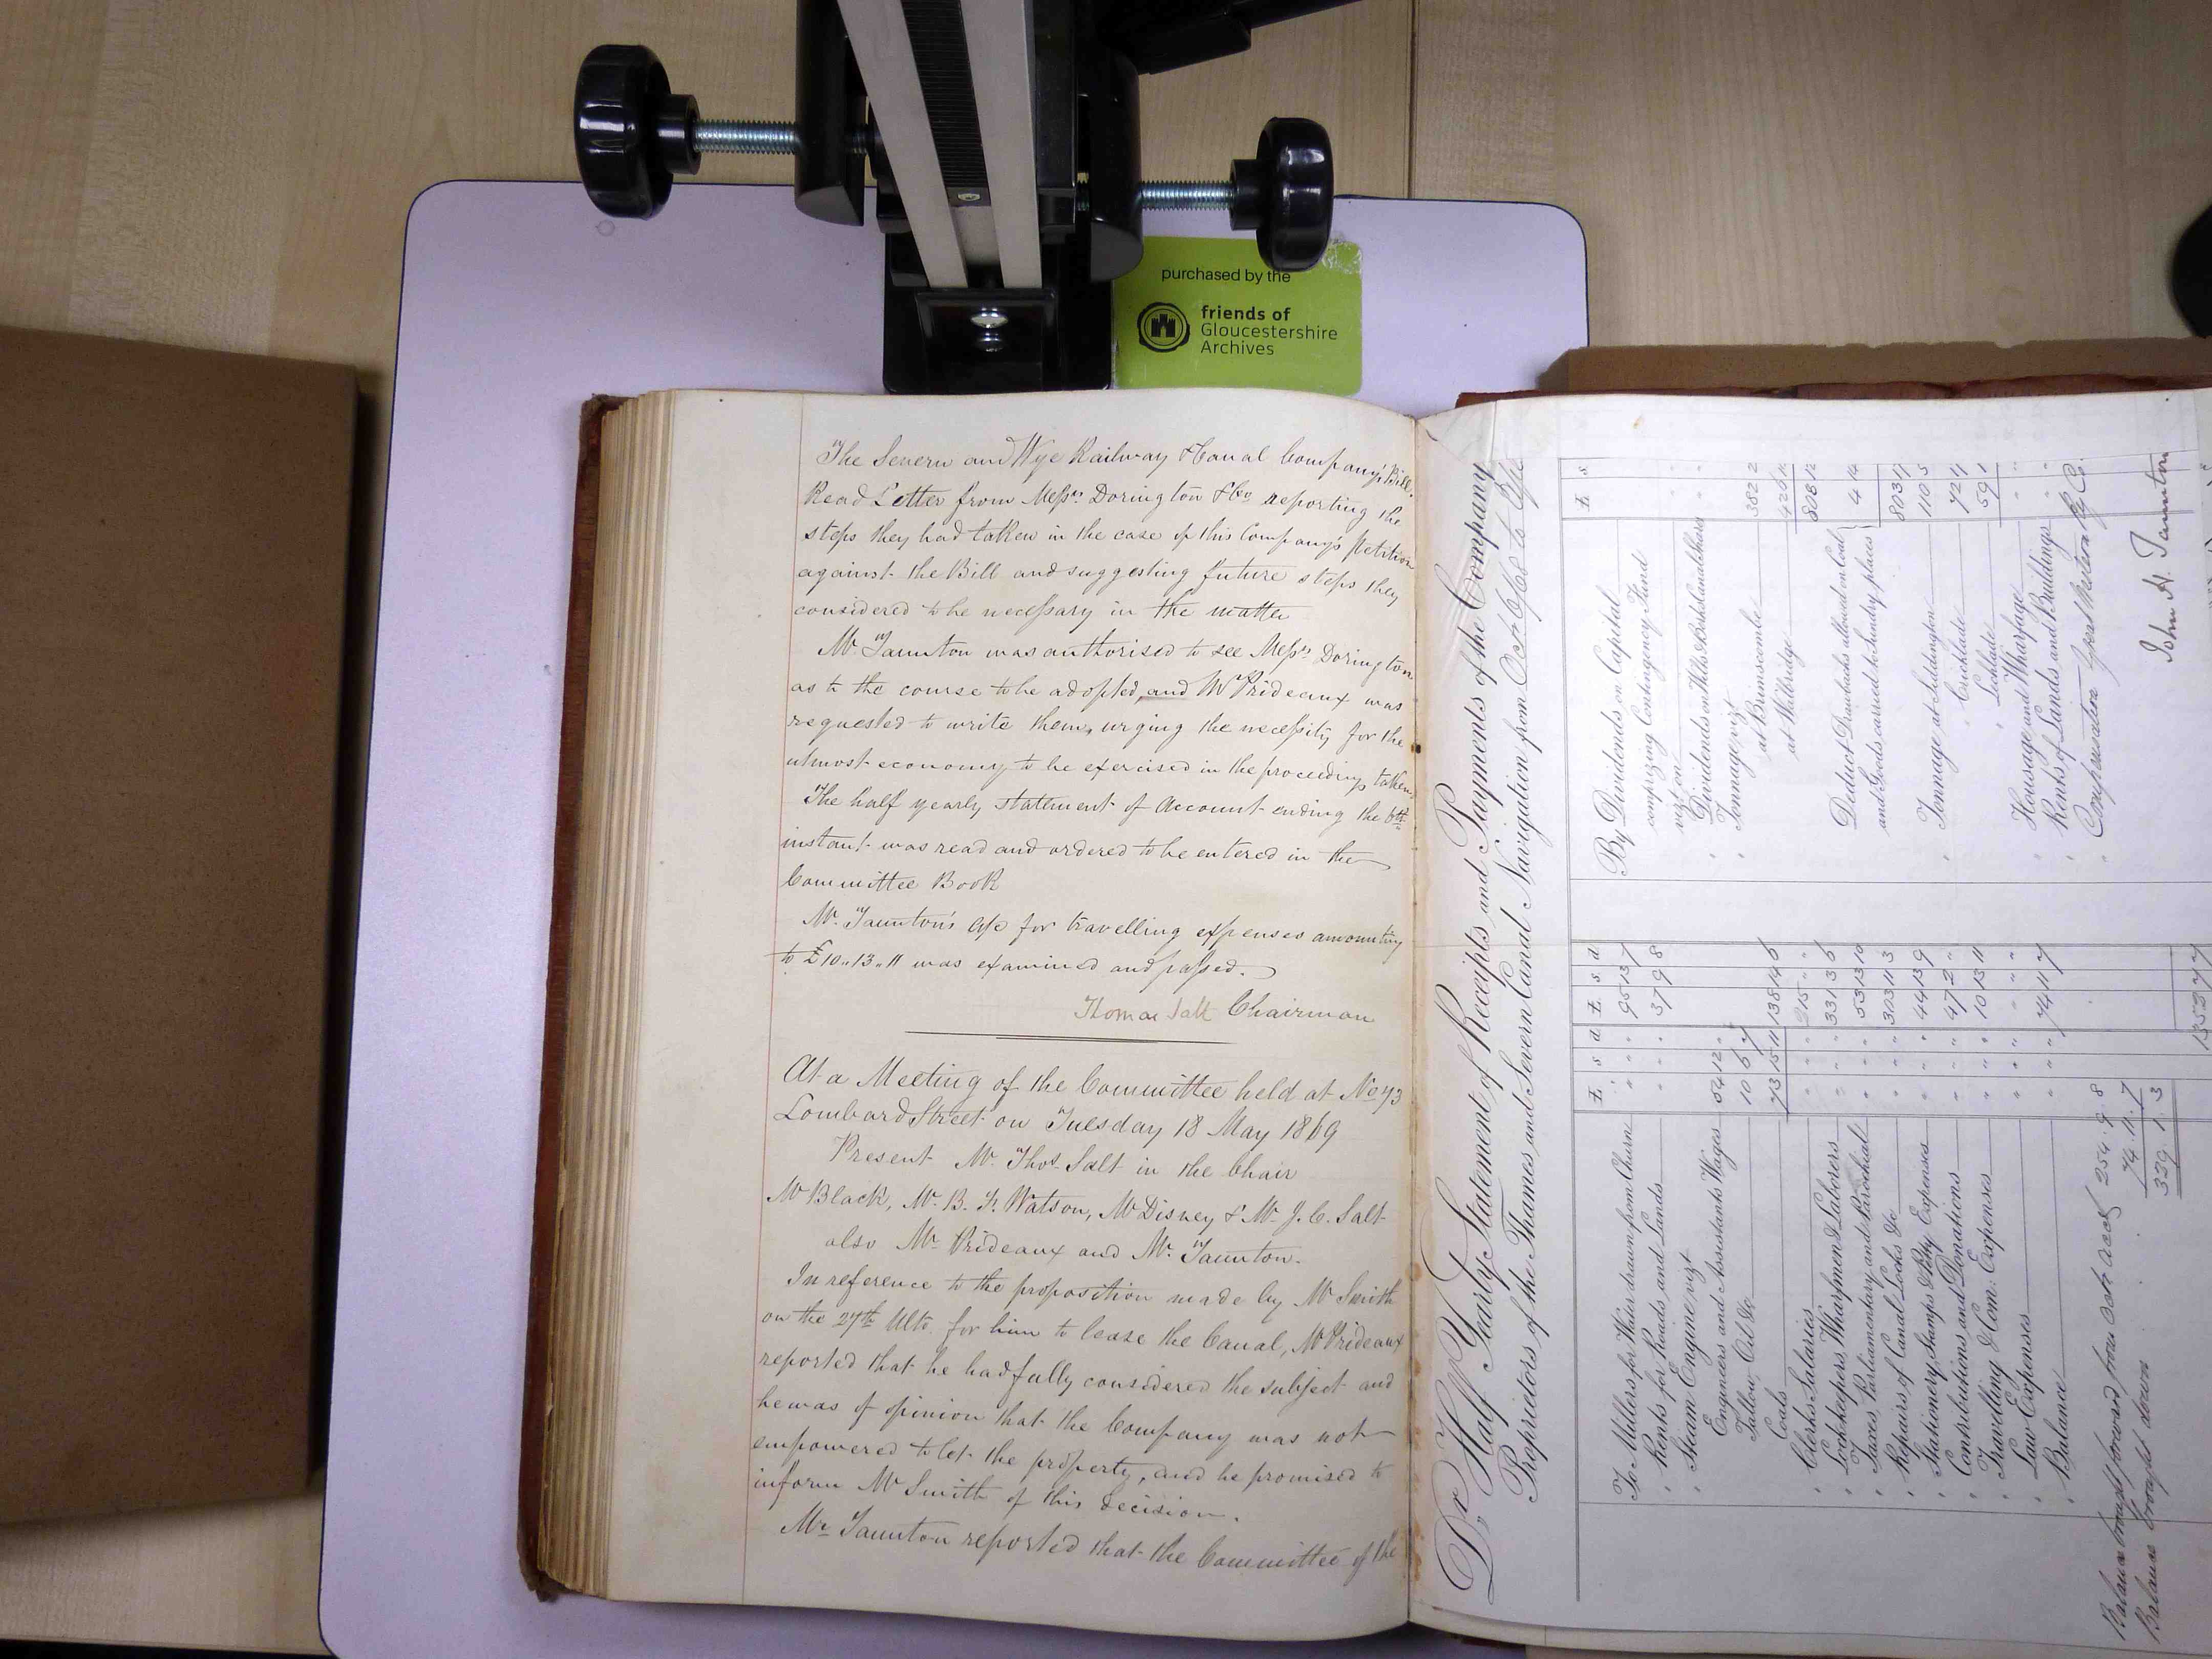 purchased by the
friends of
Gloucestershire
Archives
The Severn and Wye Railway & Canal Company's Bill.
Read Letter from Messrs. Dorington & Co reporting the
steps they had taken in the case of this Company's Petition
against the Bill and suggesting future steps they
considered to be necessary in the matter
Mr. Taunton was authorised to see Messrs Dorington
as to the course to be adopted, and Mr Prideaux was
requested to write them, urging the necessity for the
utmost economy to be exercised in the proceedings taken.
The half yearly statement of Account ending the 6th
instant was read and ordered to be entered in the
Committee Book
Mr. Taunton's a/c for travelling expenses amounting
to £10..13..11 was examined and passed.
Thomas Salt Chairman
At a Meeting of the Committee held at No 73
Lombard Street on Tuesday 18 May 1869
Present Mr. Thos. Salt in the Chair
Mr Black, Mr. B. F. Watson, Mr Disney & Mr. J. C. Salt
also Mr. Prideaux and Mr. Taunton.
In reference to the proposition made by Mr Smith
on the 27th Ulto. for him to lease the Canal, Mr Prideaux
reported that he had fully considered the subject and
he was of opinion that the Company was not
empowered to let the property, and he promised to
inform Mr Smith of this decision.
Mr Taunton reported that the Committee of the
Dr Half Yearly Statement of Receipts and Payments of the Company
Proprietors of the Thames and Severn Canal Navigation from Oct 6/68 to
£ s d £ s d
To Millers for Water drawn from Churn " " " 95 13 7
" Rents for Roads and Lands " " " 37 9 8
" Steam Engine viz t
Engineers and Assistants Wages 54 12 "
Tallow, Oil &c 10 6 7
Coals 73 15 11 138 14 6
" Clerks Salaries " " " 215 " "
" Lockkeepers, Wharfmen & Laborers " " " 331 3 6
" Taxes, Parliamentary and Parochial " " " 53 13 10
" Repairs of Canal Locks &c " " " 303 11 3
" Stationery, Stamps & Petty Expenses " " " 44 13 9
" Contributions and Donations " " " 47 2 "
" Travelling & Com: Expenses " " " 10 13 11
" Law Expenses " " " " " "
" Balance " " " 74 11 7
1352 7 7
Balance brought forward from last acct 254 9 8
74 11 7
Balance brought down 329 1 3
£ s
By Dividends on Capital
comprizing Contingency Fund
viz t on
" Dividends on Wilts & Berks Canal Shares " "
" Tonnage viz t
at Brimscombe 382 2
at Wallbridge
808 12
Deduct Drawbacks allowed on Coal
and Goods carried to Sundry places 4 14
803 17
" Tonnage at Siddington 110 5
" Cricklade 72 1
" Lechlade 59 1
" Housage and Wharfage " "
" Rents of Lands and Buildings " "
" Compensation Great Western Ry Co.
John H. Taunton